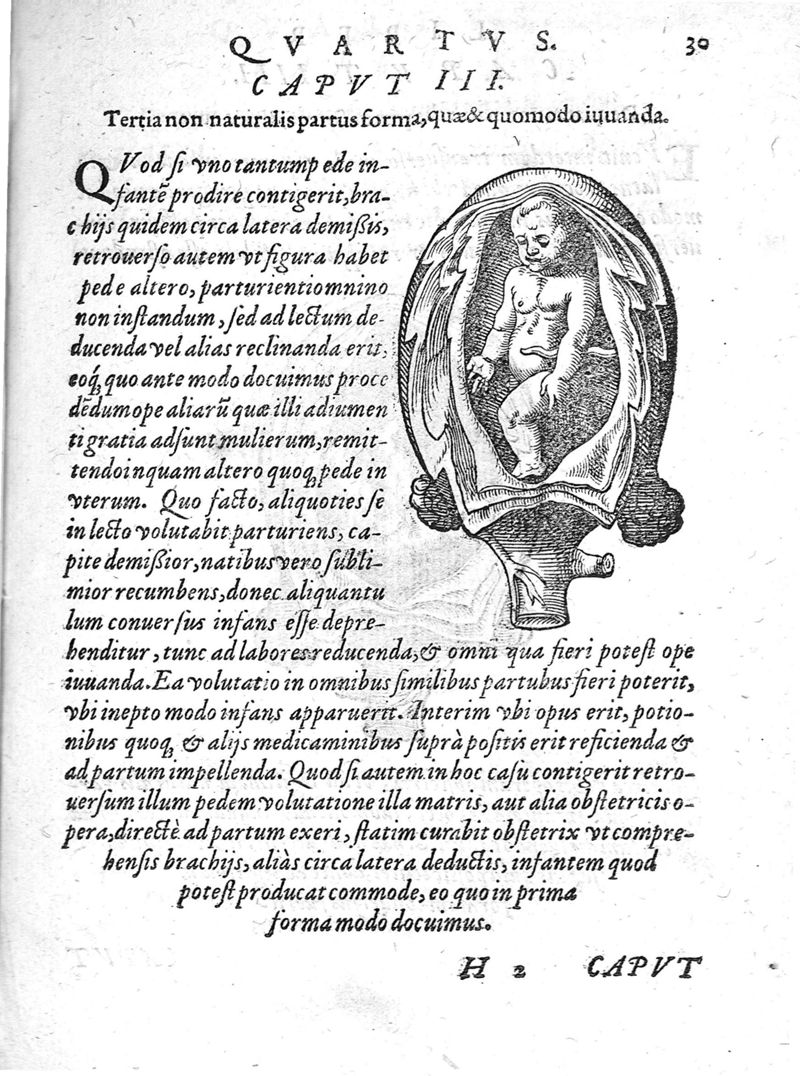 QVARTVS. 30
CAPVT III.
Tertia non naturalis partus forma, quæ & quomodo iuuanda.
QVod si vno tantump ede in-
fantẽ prodire contigerit, bra-
chijs quidem circa latera demißis,
retrouerso autem vt figura habet
pede altero, parturienti omnino
non instandum, sed ad lectum de-
ducenda vel alias reclinanda erit,
eoq́; quo ante modo docuimus proce
dẽdum ope aliarũ quæ illi adiumen
ti gratia adsunt mulierum, remit-
tendo inquam altero quoq; pede in
vterum. Quo facto, aliquoties se
in lecto volutabit parturiens, ca-
pite demißior, natibus vero subli-
mior recumbens, donec aliquantu
lum conuersus infans esse depre-
henditur, tunc ad labores reducenda, & omni qua fieri potest ope
iuuanda. Ea volutatio in omnibus similibus partubus fieri poterit,
vbi inepto modo infans apparuerit. Interim vbi opus erit, potio-
nibus quoq; & alijs medicaminibus suprà positis erit reficienda &
ad partum impellenda. Quod si autem in hoc casu contigerit retro-
uersum illum pedem volutatione illa matris, aut alia obstetricis o-
pera, directè ad partum exeri, statim curabit obstetrix vt compre-
hensis brachijs, aliàs circa latera deductis, infantem quod
potest producat commode, eo quo in prima
forma modo docuimus.
H 2 CAPVT